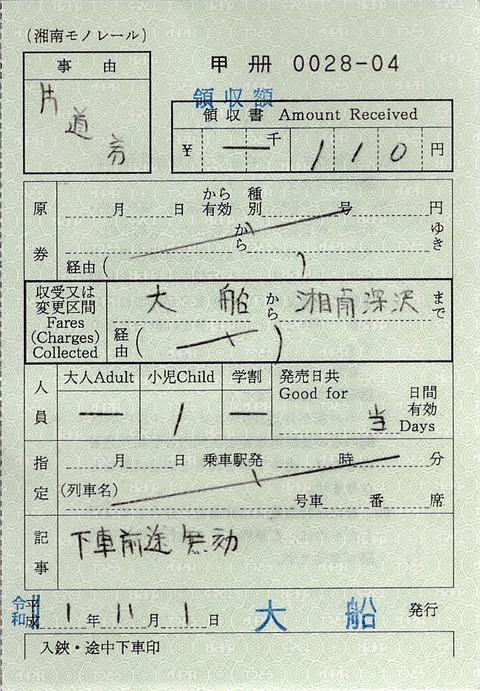 (湘南モノレール)
事由
片道券
甲 册 0028-04
領収額
領収書 Amount Received
¥ ― 千 110 円
原券
月 日 から有効 種別 号 円
から ゆき
経由( )
収受又は変更区間 Fares (Charges) Collected
大船 から 湘南深沢 まで
経由( ― )
人員
大人Adult 小児Child 学割 発売日共 Good for 日間有効 Days
― 1 ― 当
指定
月 日 乗車駅発 時 分
(列車名) 号車 番 席
記事
下車前途無効
令和 平成 1年 11月 1日 大船 発行
入鋏・途中下車印